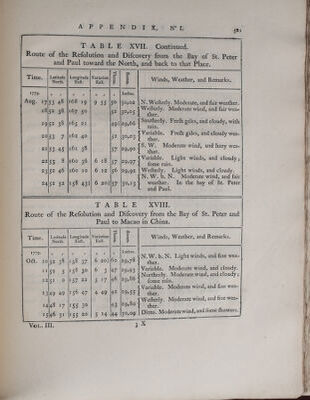 APPENDIX, No I. 521
TABLE XVII. Continued.
Route of the Resolution and Discovery from the Bay of St. Peter
and Paul toward the North, and back to that Place.
Time. Latitude North. Longitude East. Variation East. Therm. Barom. Winds, Weather, and Remarks.
1779. Inches.
Aug. 17 53 48 168 19 9 55 50 30,02 N. Westerly. Moderate, and fair weather.
Westerly. Moderate wind, and fair weather.
Southerly. Fresh gales, and cloudy, with rain.
20 53 7 162 40 51 30,03 Variable. Fresh gales, and cloudy weather.
21 53 45 161 58 57 29,90 S. W. Moderate wind, and hazy weather.
22 53 8 160 58 6 18 57 29,97 Variable. Light winds, and cloudy; some rain.
23 52 46 160 10 6 12 56 29,92 Westerly. Light winds, and cloudy.
24 52 52 158 43½ 6 20 57 30,13 N. W. b. N. Moderate wind, and fair weather. In the bay of St. Peter and Paul.
TABLE XVIII.
Route of the Resolution and Discovery from the Bay of St. Peter and
Paul to Macao in China.
Time. Latitude North. Longitude East. Variation East. Therm. Barom. Winds, Weather, and Remarks.
1779. Inches.
Oct. 10 52 36 N. W. b. N. Light winds, and fine weather.
11 52 5 158 30 6 3 47 Variable. Moderate wind, and cloudy.
12 51 0 157 22 5 17 46 29,86 Northerly. Moderate wind, and cloudy; some rain.
13 49 49 156 47 4 49 42 29,55 Variable. Moderate wind, and fine weather.
14 48 17 155 30 43 29,80 Westerly. Moderate wind, and fine weather.
15 46 51 155 20 5 14 44 30,09 Ditto. Moderate wind, and some showers.
VOL. III. 3 X